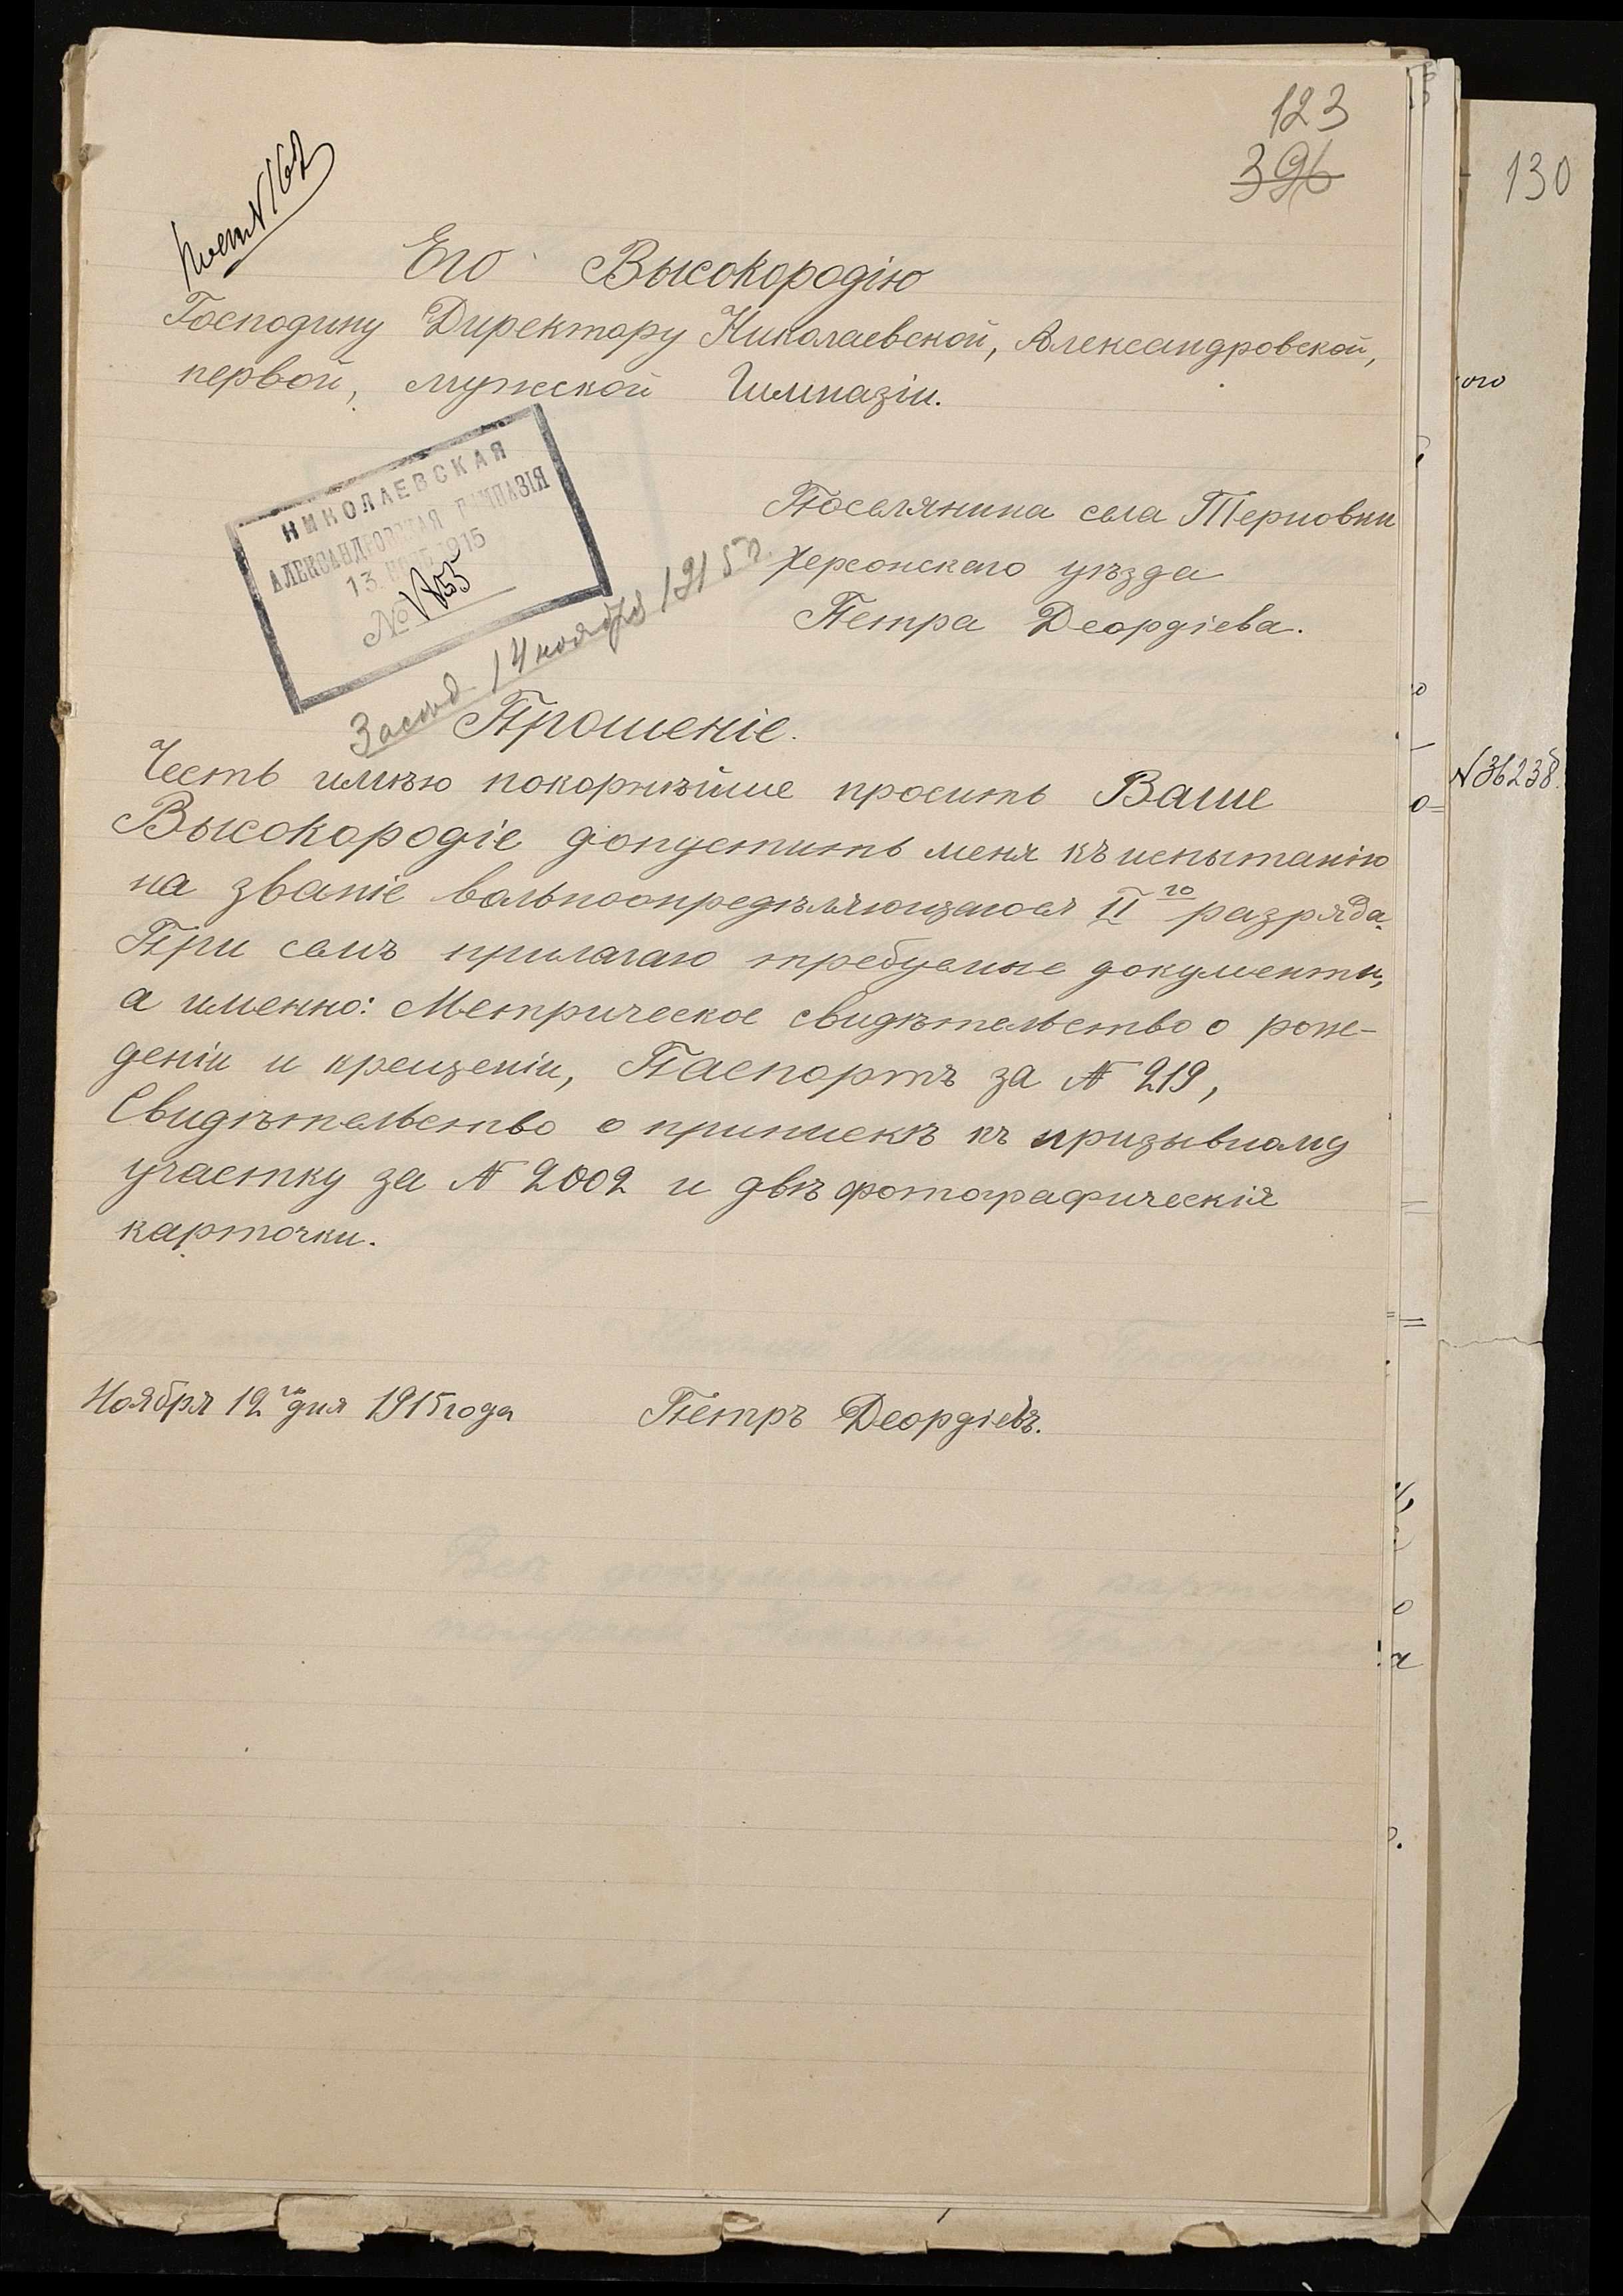 123
396
130
N162
Его Высокородію
Господину Директору Николаевской, Александровской,
первой, мужской Гимназіи.
НИКОЛАЕВСКАЯ
АЛЕКСАНДРОВСКАЯ ГИМНАЗІЯ
13 НОЯБ 1915
№ 1855
Засѣд. 14 ноября 1915 г.
Поселянина села Терновки
Херсонскаго уѣзда
Петра Деордіева.
Прошеніе.
Честь имѣю покорнѣйше просить Ваше
Высокородіе допустить меня къ испытанію
на званіе вольноопредѣляющагося II го разряда.
При семъ прилагаю требуемые документы,
а именно: Метрическое свидѣтельство о рож-
деніи и крещеніи, Паспортъ за № 219,
Свидѣтельство о припискѣ къ призывному
участку за № 2002 и двѣ фотографическія
карточки.
Ноября 12 го дня 1915 года Петръ Деордіевъ.
ого
N36238.